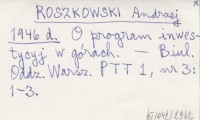 ROSZKOWSKI Andrzej
1946 d. O program inwes-
tycyj w górach. — Biul.
Oddz. Warsz. PTT 1, nr 3:
1-3.